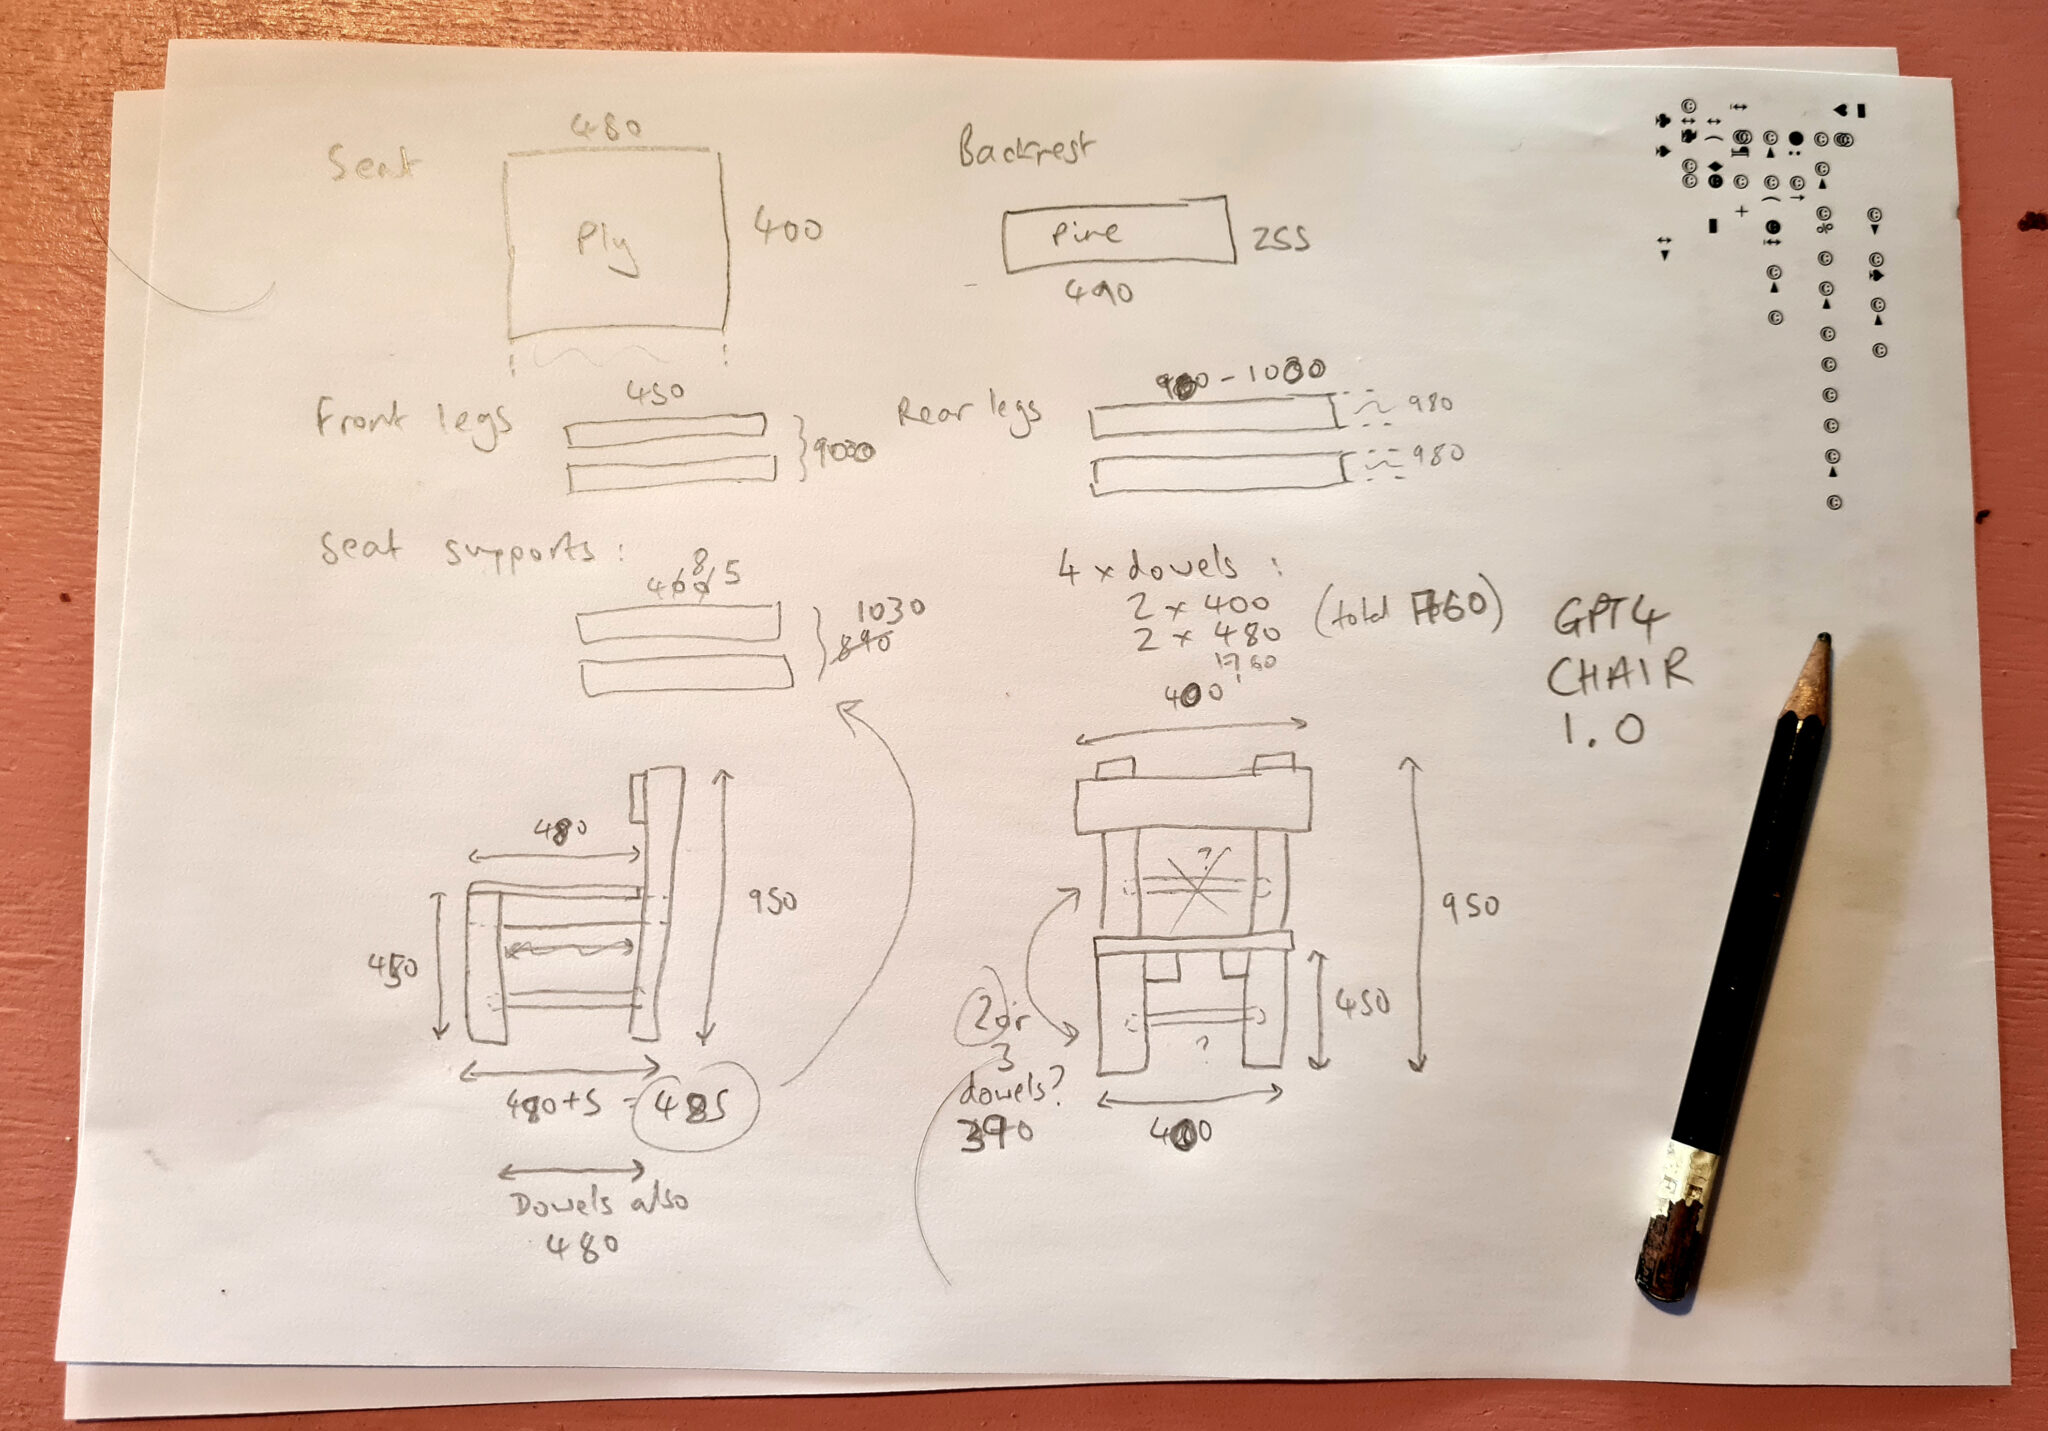 480
Seat
Ply
400
Backrest
Pine
255
490
Front legs
450
Rear legs
980
980
Seat supports:
5
1030
890
4 x dowels:
2 x 400
2 x 480
1760
(total 1760)
GPT4
CHAIR
1.0
400
480
950
450
480+5 = 485
Dowels also
480
?
950
450
?
2 or
3
dowels?
390
400